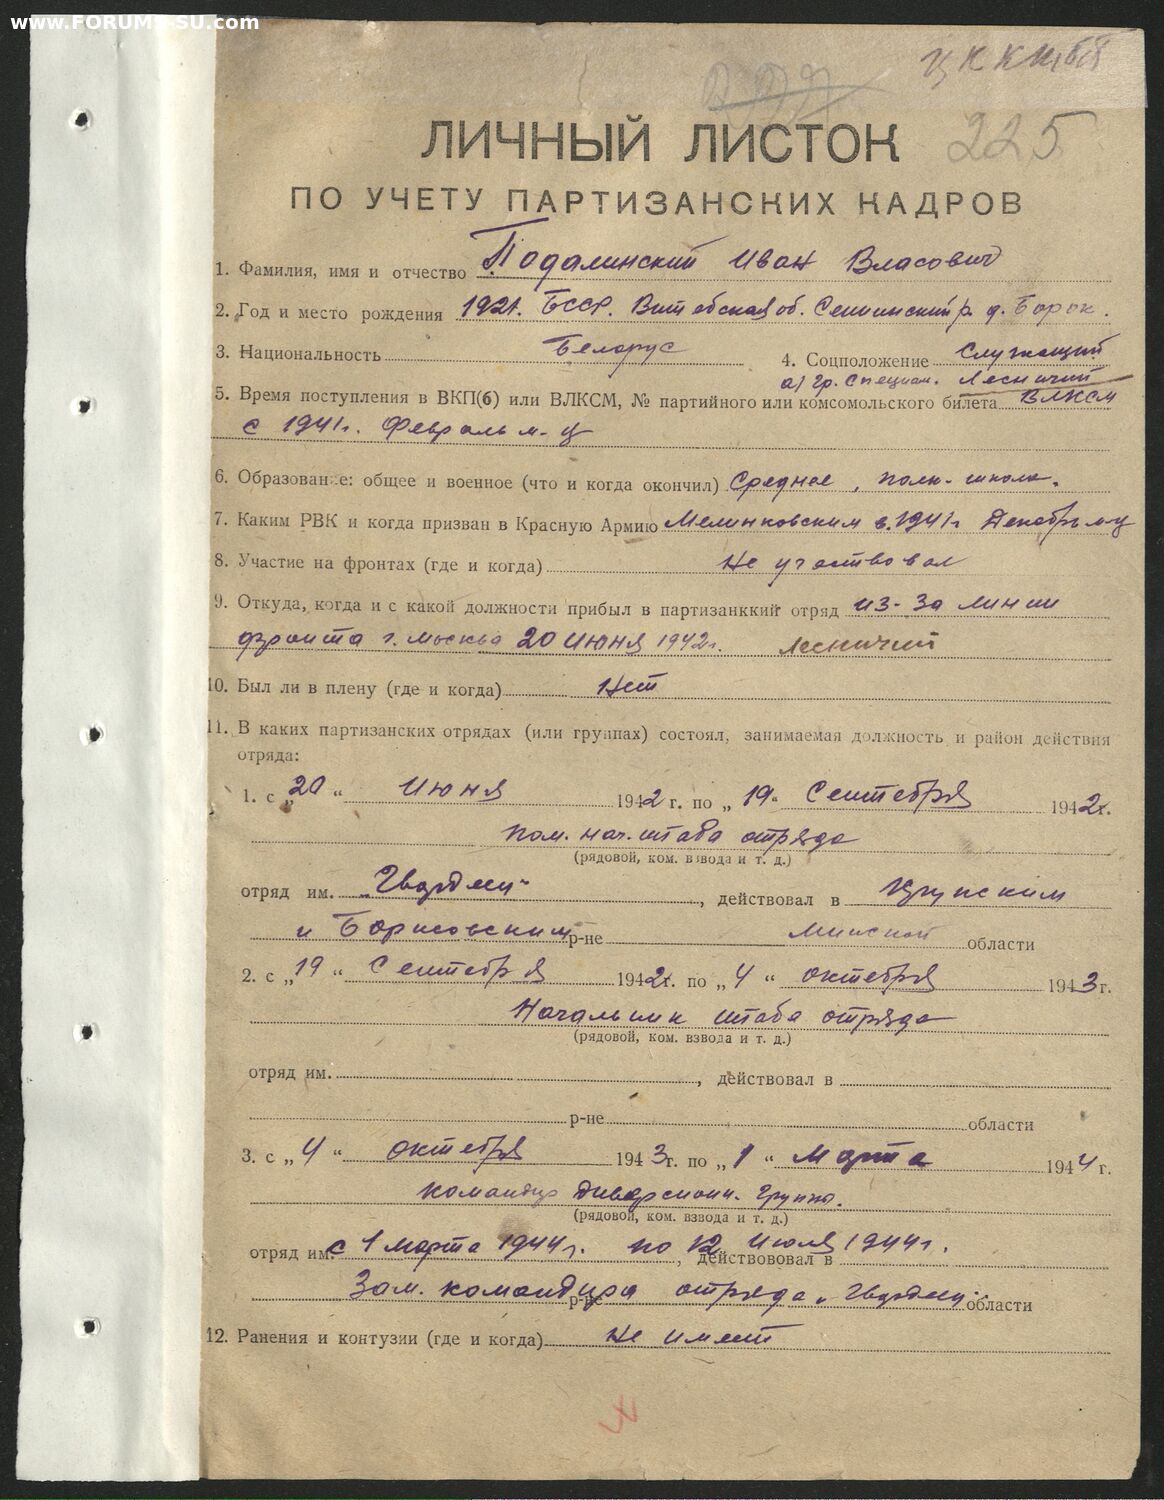 www.FORUMS-SU.com
ЦК КП(б)Б
ЛИЧНЫЙ ЛИСТОК 225
ПО УЧЕТУ ПАРТИЗАНСКИХ КАДРОВ
1. Фамилия, имя и отчество Подалинский Иван Власович
2. Год и место рождения 1921. БССР. Витебская об. Сеннинский р. д. Борок.
3. Национальность Белорус 4. Соцположение Служащий
а) гр. специал. Лесничий
5. Время поступления в ВКП(б) или ВЛКСМ, № партийного или комсомольского билета ВЛКСМ
с 1941г. Февраль м-ц
6. Образование: общее и военное (что и когда окончил) Среднее, полк. школа.
7. Каким РВК и когда призван в Красную Армию в 1941г Декабрь м-ц
8. Участие на фронтах (где и когда) Не участвовал
9. Откуда, когда и с какой должности прибыл в партизанккий отряд из-за линии
фронта г. Москва 20 июня 1942г. лесничий
10. Был ли в плену (где и когда) Нет
11. В каких партизанских отрядах (или группах) состоял, занимаемая должность и район действия
отряда:
1. с „20“ Июня 1942 г. по „19“ Сентября 1942г.
пом. нач. штаба отряда
(рядовой, ком. взвода и т. д.)
отряд им. „Гвардеец“, действовал в Крупским
и Борисовским р-не Минской области
2. с „19“ Сентября 1942г. по „4“ октября 1943г.
Начальник штаба отряда
(рядовой, ком. взвода и т. д.)
отряд им. , действовал в
р-не области
3. с „4“ октября 1943г. по „1“ Марта 1944г.
командир диверсионн. группы.
(рядовой, ком. взвода и т. д.)
отряд им. с 1 марта 1944г. по 12 июля 1944г. , действововал в
Зам. командира р-не отряда „Гвардеец“ области
12. Ранения и контузии (где и когда) Не имеет